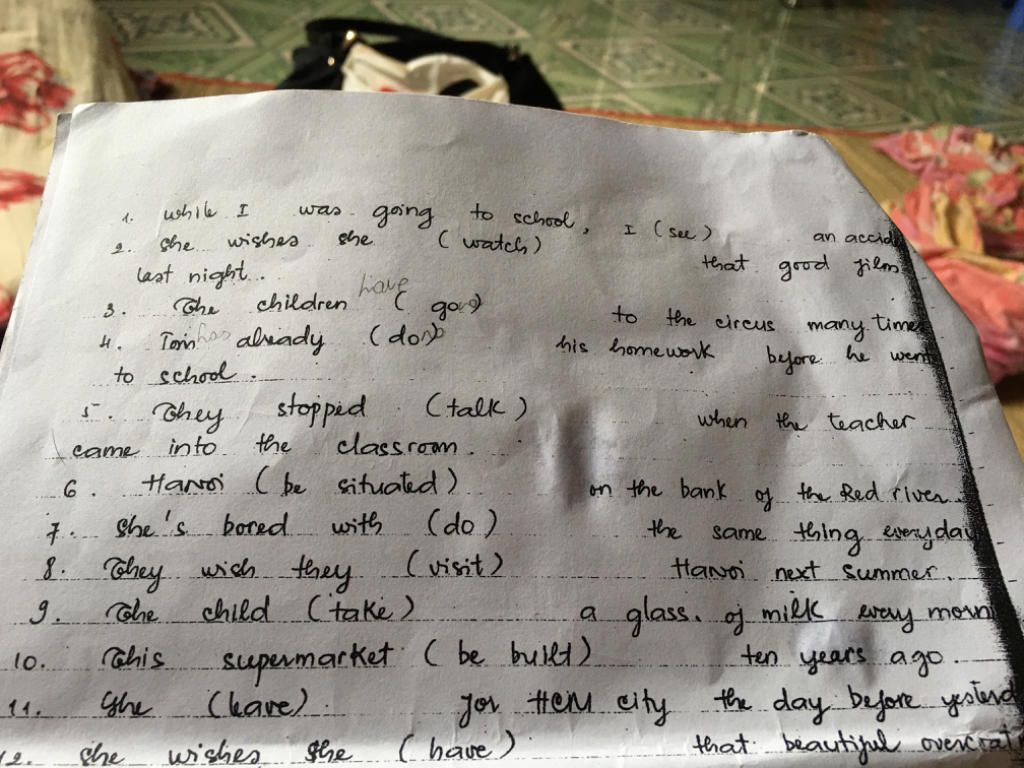 1. while I was going to school, I (see) an accid
2. She wishes she (watch) that good film
last night.
3. The children have (go) to the circus many time
4. Tom has already (do) his homework before he went
to school.
5. They stopped (talk) when the teacher
came into the classroom.
6. Hanoi (be situated) on the bank of the Red river.
7. She's bored with (do) the same thing everyday
8. They wish they (visit) Hanoi next summer.
9. The child (take) a glass of milk every morni
10. This supermarket (be built) ten years ago.
11. She (leave) for HCM city the day before yesterd
12. She wishes she (have) that beautiful overcoat